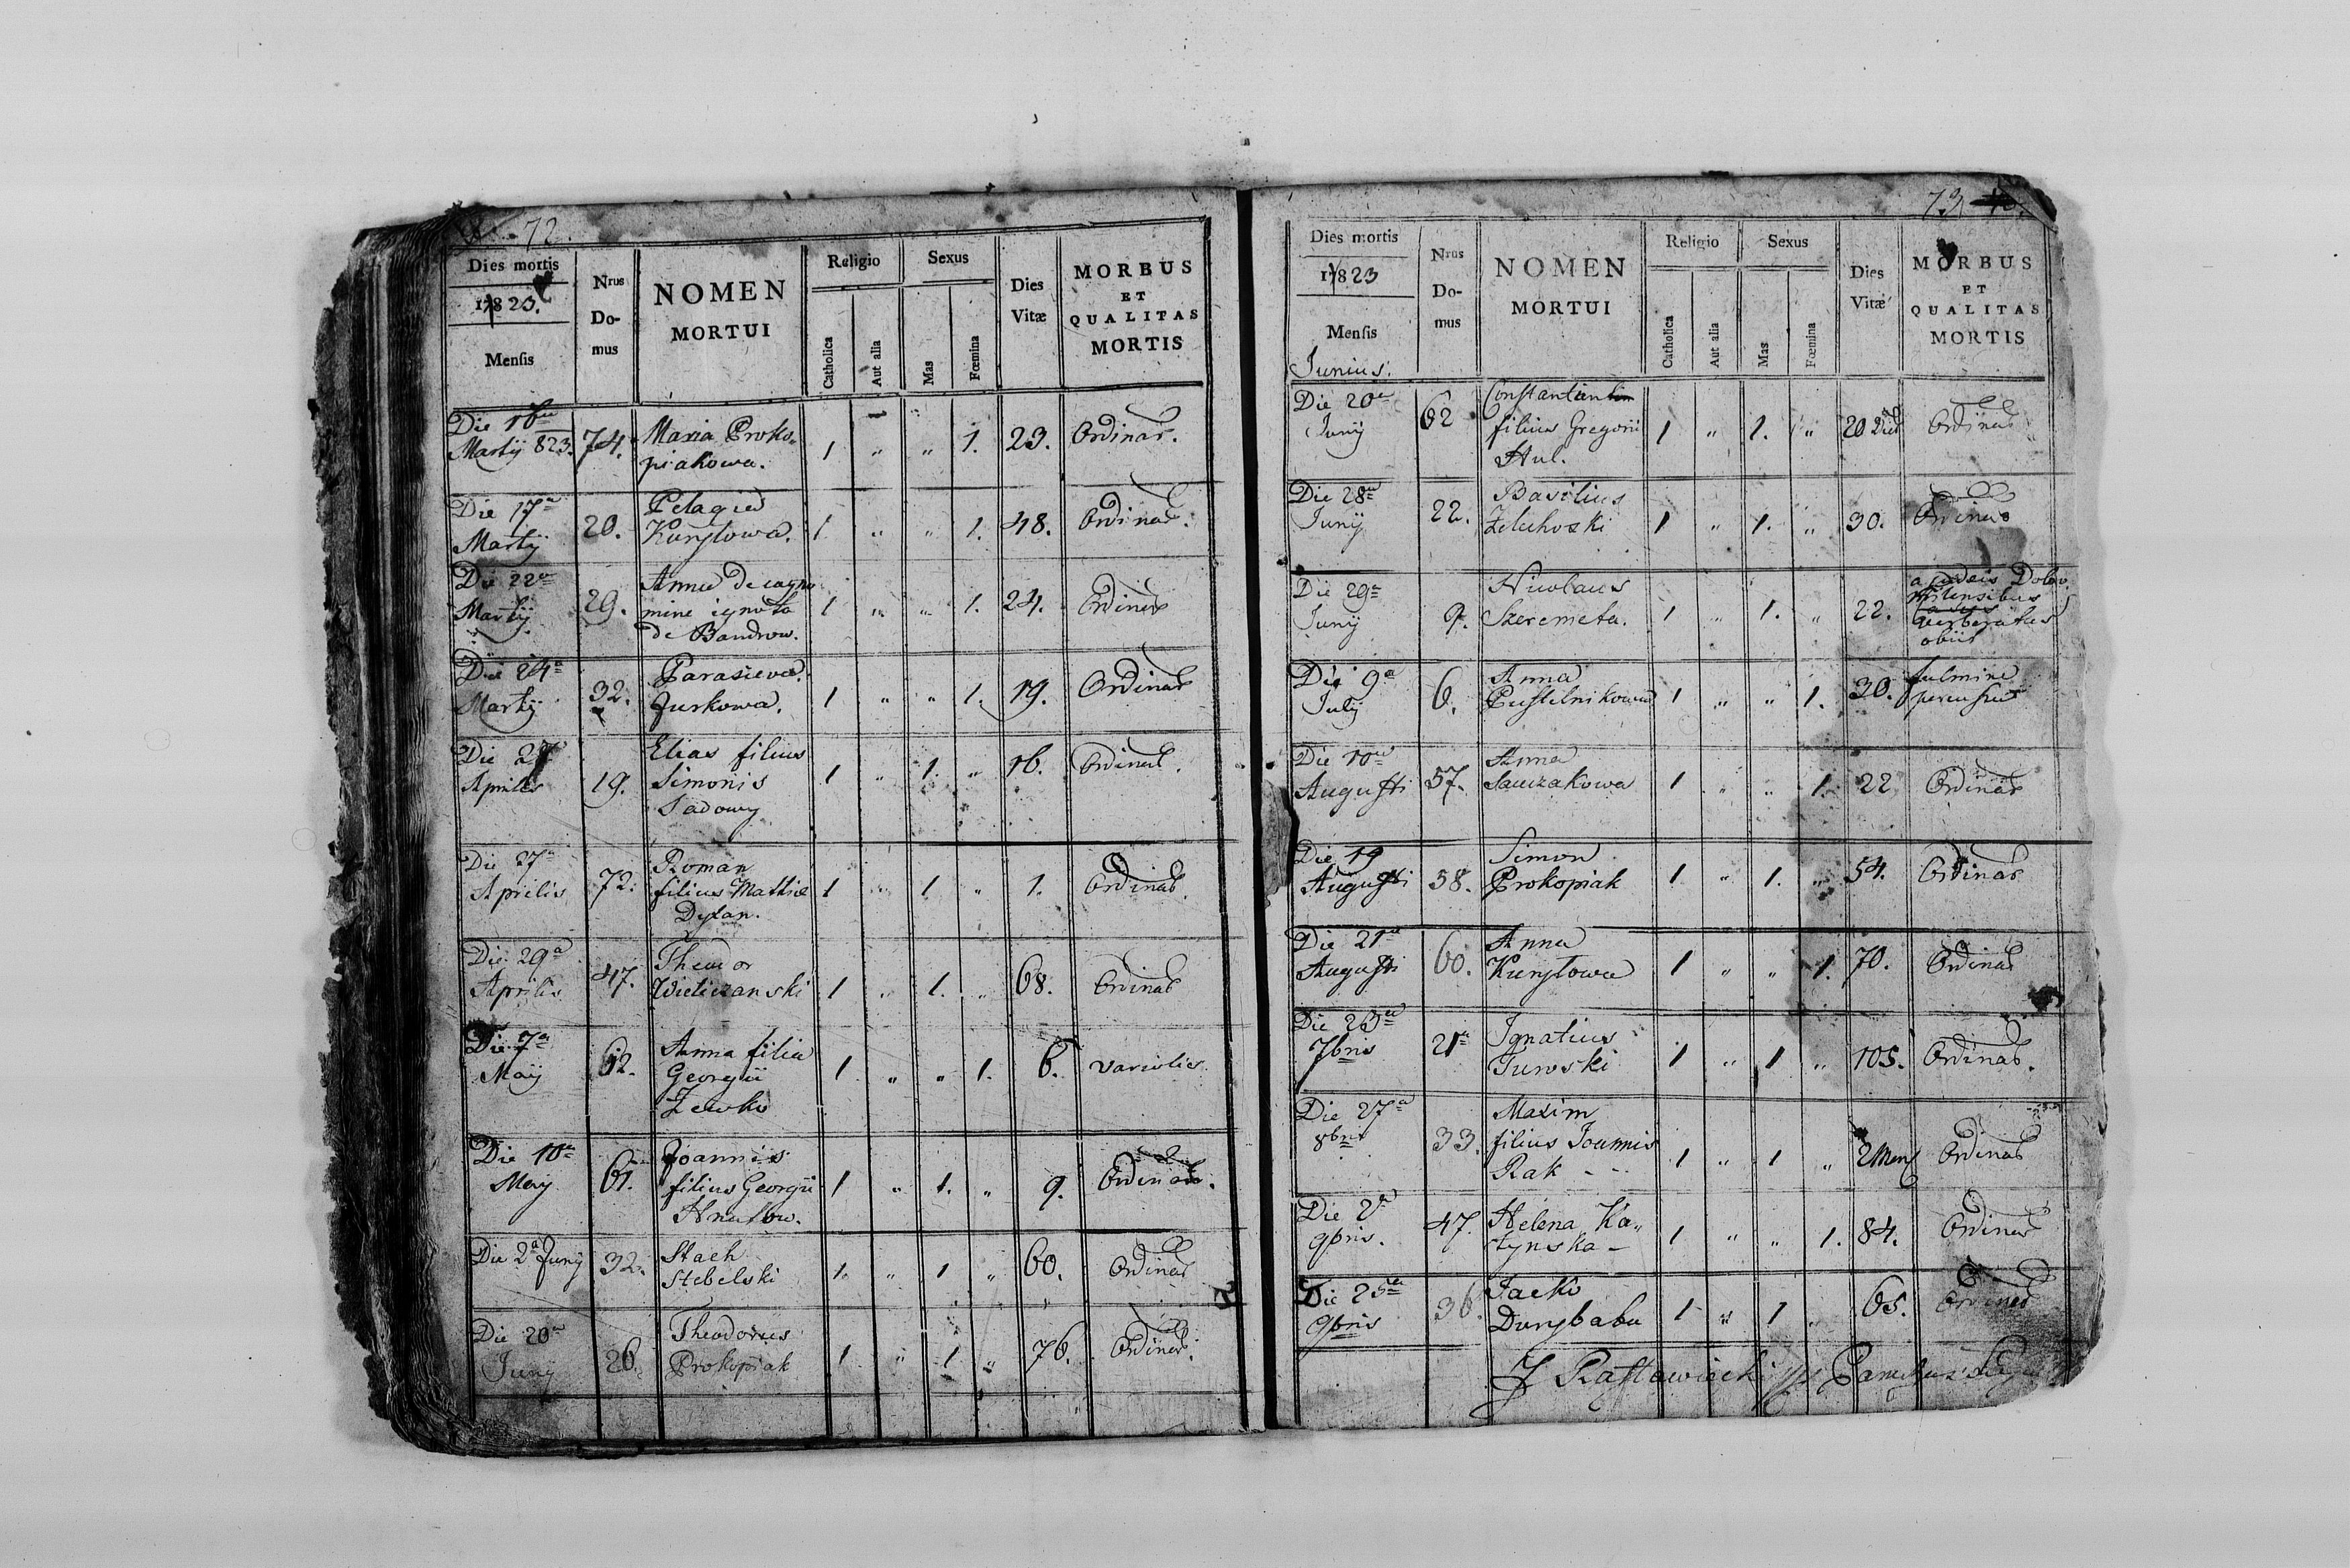 72.
Dies mortis
1823.
Mensis
Nrus Domus
NOMEN MORTUI
Religio
Catholica
Aut alia
Sexus
Mas
Fœmina
Dies Vitæ
MORBUS ET QUALITAS MORTIS
Die 16a Martij 823. 74. Maria Proko- 1 " " 1. 23. Ordinar.
piakowa.
Die 17a Martij 20. Pelagia 1. " " 1. 48. Ordinar.
Kurylowa.
Die 22a Martij 29. Anna de cogno 1 " " 1. 24. Ordinar
mine ignota
de Bandrow.
Die 24a Martij 32. Parasieva 1 " " 1. 19. Ordinar
Jurkowa.
Die 27 Aprilis 19. Elias filius 1 " 1. " 16. Ordinar.
Simonis
Sadowy
Die 27 Aprilis 72. Roman 1 " 1 " 1. Ordinar
filius Mathiæ
Dylan.
Die 29a Aprilis 47. Theodor 1 " 1. " 68. Ordinar
Wieliczanski
Die 7a Maij 62. Anna filia 1 " " 1. 6. variolis
Georgii
Lewko
Die 10a May 61. Joannis 1 " 1. " 9. Ordinar.
filius Georgii
Die 2a Junij 32. Stach 1. " 1 " 60. Ordinar
Stebelski
Die 20a Junij 26. Theodorus 1. " 1 " 76. Ordinar.
Prokopiak
73
Dies mortis
1823
Mensis
Junius.
Nrus Domus
NOMEN MORTUI
Religio
Catholica
Aut alia
Sexus
Mas
Fœmina
Dies Vitæ
MORBUS ET QUALITAS MORTIS
Die 20a Junij 62 Constantin 1 " 1. " 20 Ordinar
filius Gregorii
Hul.
Die 28a Junij 22. Basilius 1 " 1. " 30. Ordinar
Zeluhoski
Die 29a Junij 9. Nicolaus 1 " 1. " 22. a Judeis Dobro
Szeremeta. milensibus
verberatus
obiit
Die 9a Julij 6. Anna 1 " " 1. 30. fulmine
Pustelnikowa percussa
Die 10a Augusti 57. Anna 1 " " 1. 22 Ordinar
Sawzakowa
Die 19 Augusti 58. Simon 1 " 1. " 54. Ordinar
Prokopiak
Die 21a Augusti 60. Anna 1 " " 1. 70. Ordinar
Kurylowa
Die 26a 7bris 21a Ignatius 1 " 1 " 105. Ordinar.
Turoski
Die 27a 8bris 33. Maxim 1 " 1 " 2 Mens Ordinar
filius Joannis
Rak
Die 2a 9bris. 47. Helena Ka- 1 " " 1. 84. Ordinar
tynska
Die 25a 9bris 36. Jacko 1 " 1 " 65. Ordinar
Durybaba
J Rastawiecki